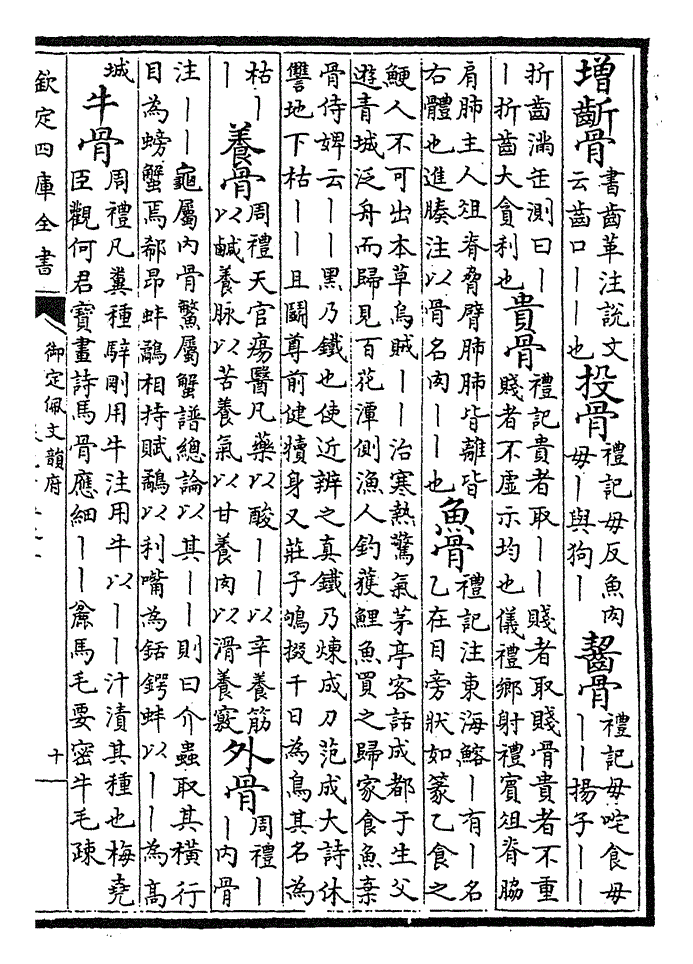 增齗骨 書齒革注說文
云齒口丨丨也
投骨 禮記毋反魚肉
毋丨與狗丨
齧骨 禮記毋咤食毋
丨丨揚子丨丨
折齒滿缶測曰丨
丨折齒大貪利也
貴骨 禮記貴者取丨丨賤者取賤骨貴者不重
賤者不虛示均也儀禮鄉射禮賓俎脊脇
肩肺主人俎脊脅臂肺肺皆離皆
右體也進腠注以骨名肉丨丨也
魚骨 禮記注東海鰫丨有丨名
乙在目旁狀如篆乙食之
鯁人不可出本草烏賊丨丨治寒熱驚氣茅亭客話成都于生父
遊青城泛舟而歸見百花潭側漁人釣獲鯉魚買之歸家食魚棄
骨侍婢云丨丨黑乃鐵也使近辨之真鐵乃煉成刀范成大詩休
讐地下枯丨丨且鬭尊前健犢身又莊子鴝掇千日為鳥其名為
枯丨
丨
養骨 周禮天官瘍醫凡藥以酸丨丨以辛養筋
以鹹養脉以苦養氣以甘養肉以滑養竅
外骨 周禮丨
丨內骨
注丨丨龜屬內骨鱉屬蟹譜總論以其丨丨則曰介蟲取其橫行
目為螃蟹焉郝昂蚌鷸相持賦鷸以利嘴為銛鍔蚌以丨丨為高
城
牛骨 周禮凡糞種騂剛用牛注用牛以丨丨汁漬其種也梅堯
臣觀何君寶畫詩馬骨應細丨丨麄馬毛要密牛毛疎
欽定四庫全書
御定佩文韻府
十